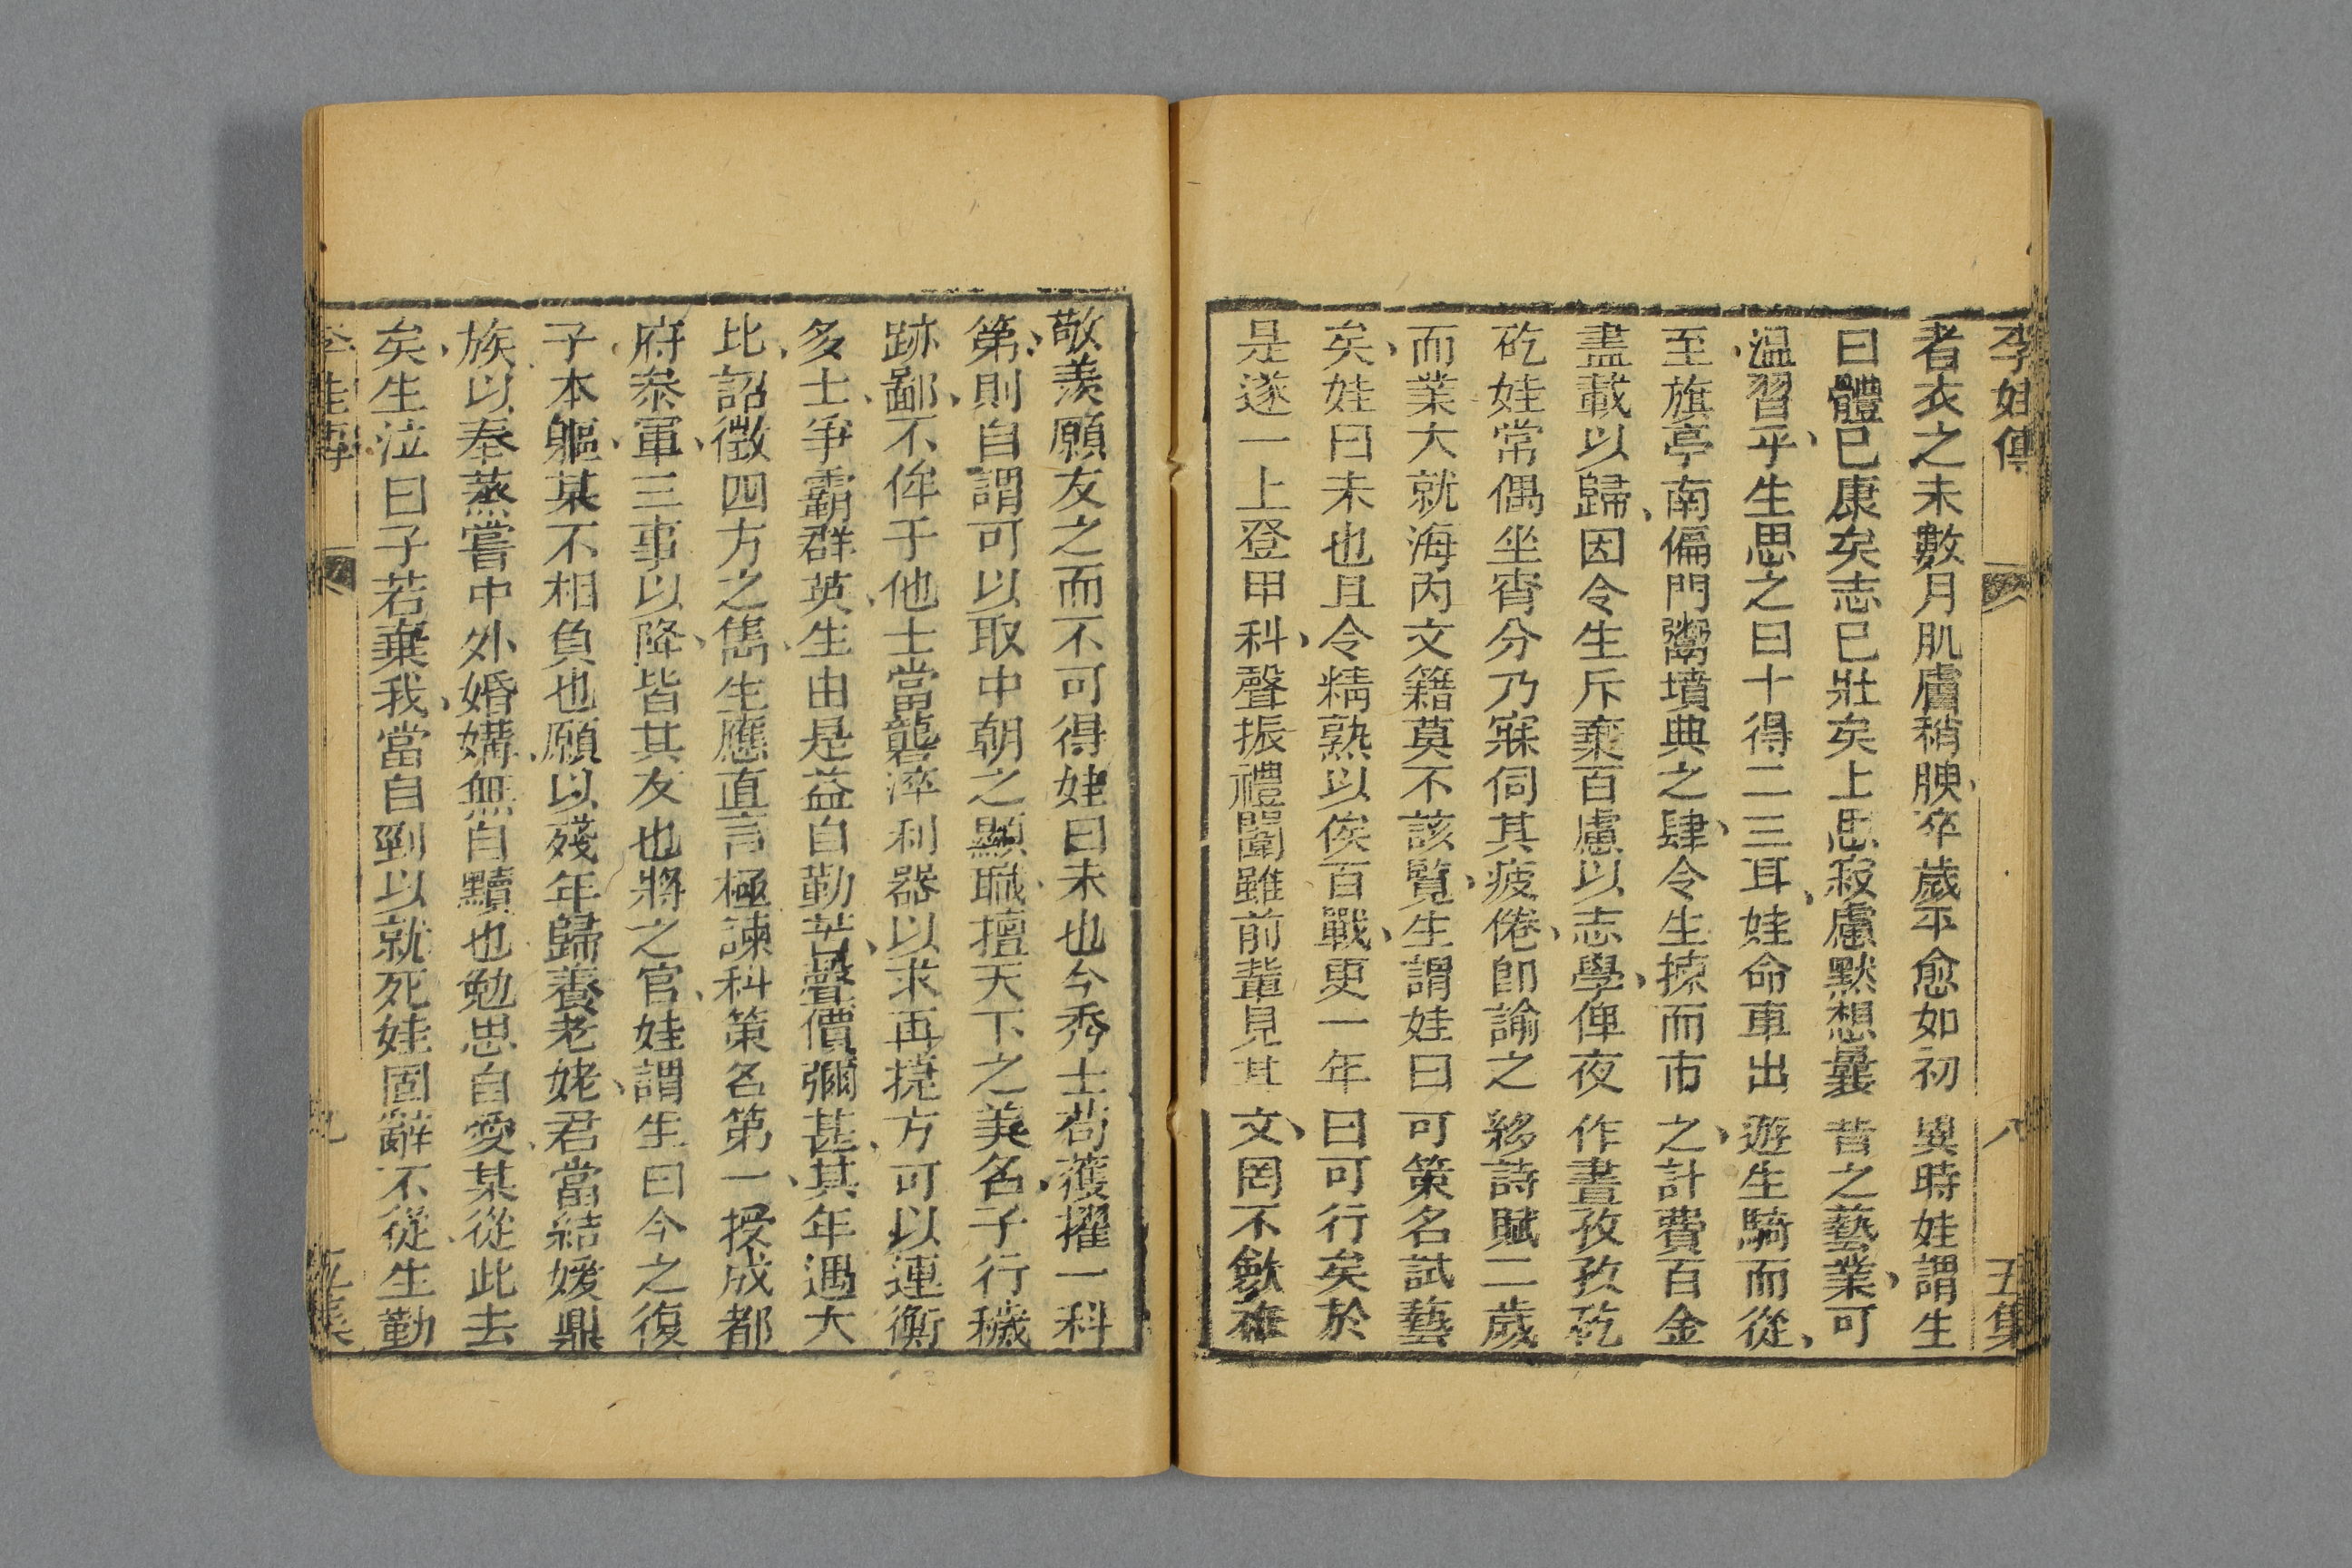 李娃傳 八 五集
者衣之未數月肌膚稍腴、卒歲平愈如初異時娃謂生
曰體已康矣志已壯矣上思寂慮默想曩昔之藝業、可
溫習乎、生思之曰十得二三耳、娃命車出遊生騎而從、
至旗亭南偏門鬻墳典之肆、令生揀而市之、計費百金
盡載以歸、因令生斥棄百慮以志學、俾夜作晝孜孜矻
矻娃常偶坐宵分乃寐伺其疲倦、卽諭之綴詩賦二歲
而業大就海內文籍莫不該覽、生謂娃曰可策名試藝
矣、娃曰未也且令精熟以俟百戰、更一年曰可行矣於
是遂一上登甲科、聲振禮闈雖前輩見其文、罔不斂衽
敬羨願友之而不可得娃曰未也今秀士苟獲擢一科
第、則自謂可以取中朝之顯職、擅天下之美名、子行穢
跡鄙、不侔于他士當礱淬利器以求再捷方可以連衡
多士、爭霸群英、生由是益自勤苦、聲價彌甚、其年遇大
比、詔徵四方之雋、生應直言極諫科策名第一、授成都
府叅軍、三事以降、皆其友也將之官、娃謂生曰今之復
子本軀、某不相負也願以殘年歸養老姥、君當結媛鼎
族以奉蒸嘗中外婚媾、無自黷也勉思自愛、某從此去
矣、生泣曰子若棄我、當自剄以就死娃固辭不從、生勤
李娃傳 九 五集